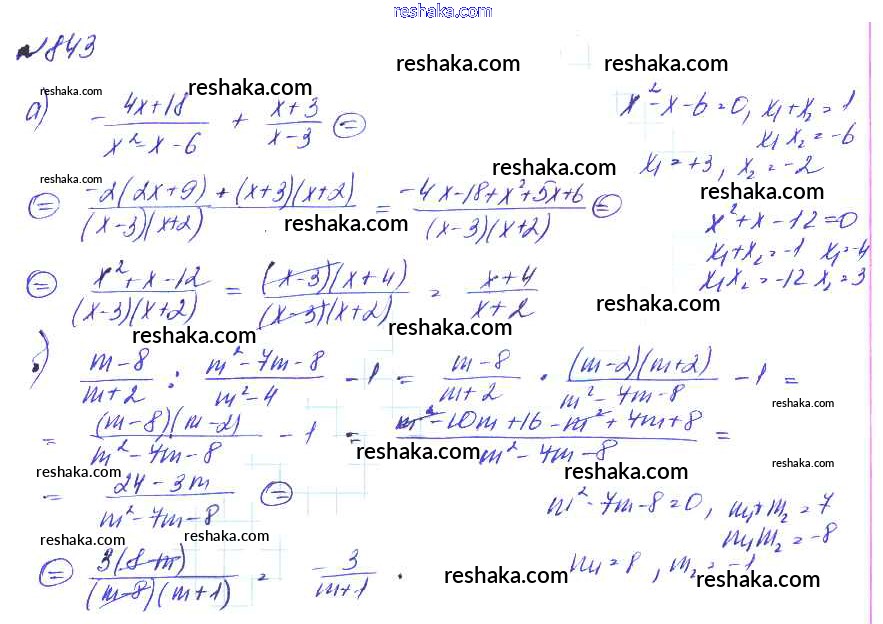 reshaka.com
№843
reshaka.com reshaka.com
reshaka.com reshaka.com
а) - (4x+18)/(x²-x-6) + (x+3)/(x-3) =
x²-x-6=0, x₁+x₂=1
x₁x₂=-6
x₁=+3, x₂=-2
reshaka.com reshaka.com reshaka.com
= (-2(2x+9)+(x+3)(x+2))/((x-3)(x+2)) = (-4x-18+x²+5x+6)/((x-3)(x+2)) =
reshaka.com
x²+x-12=0
x₁+x₂=-1 x₁=-4
x₁x₂=-12 x₂=3
reshaka.com
= (x²+x-12)/((x-3)(x+2)) = ((x-3)(x+4))/((x-3)(x+2)) = (x+4)/(x+2)
reshaka.com
reshaka.com reshaka.com
б) (m-8)/(m+2) : (m²-7m-8)/(m²-4) - 1 = (m-8)/(m+2) · ((m-2)(m+2))/(m²-7m-8) - 1 =
reshaka.com
= ((m-8)(m-2))/(m²-7m-8) - 1 = (m²-10m+16-m²+7m+8)/(m²-7m-8) =
reshaka.com
reshaka.com reshaka.com reshaka.com
= (24-3m)/(m²-7m-8) =
m²-7m-8=0, m₁+m₂=7
m₁m₂=-8
m₁=8, m₂=-1
reshaka.com reshaka.com reshaka.com
= (3(8-m))/((m-8)(m+1)) = -3/(m+1).
reshaka.com reshaka.com